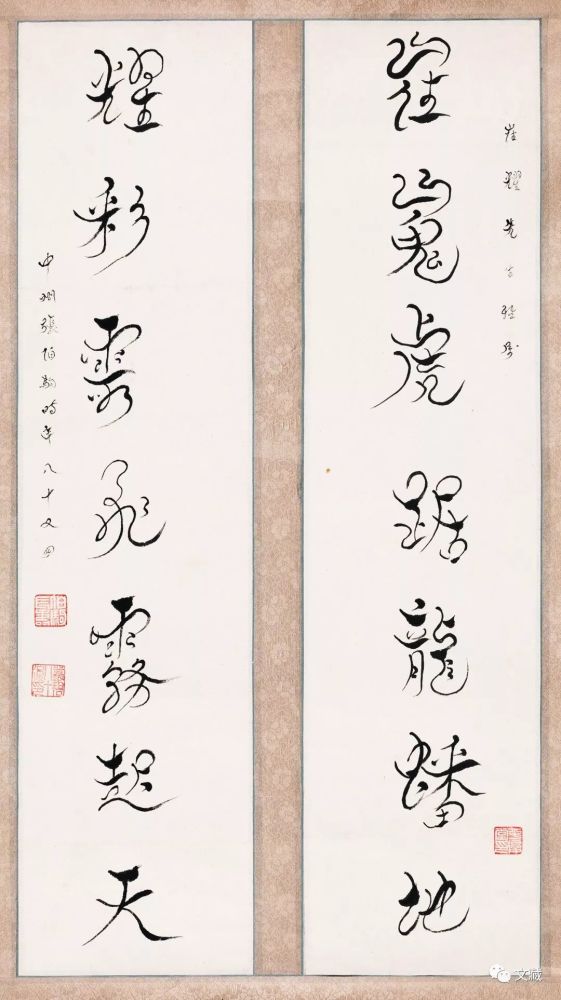 崔耀先生雅屬
崔嵬虎踞龍蟠地
耀彩霞飛霧起天
中州張伯駒時年八十又四
文藏